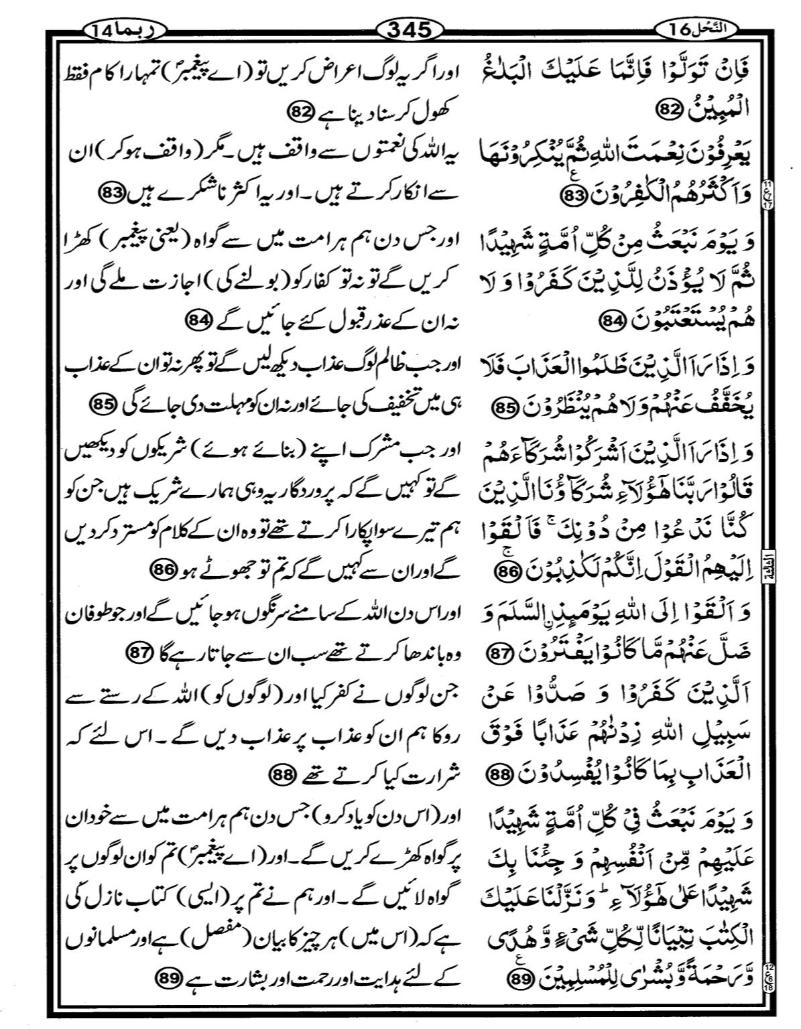 النَّحْل 16
345
ربما 14
فَاِنْ تَوَلَّوْا فَاِنَّمَا عَلَيْكَ الْبَلٰغُ
الْمُبِيْنُ 82
يَعْرِفُوْنَ نِعْمَتَ اللّٰهِ ثُمَّ يُنْكِرُوْنَهَا
وَاَكْثَرُهُمُ الْكٰفِرُوْنَ 83
وَ يَوْمَ نَبْعَثُ مِنْ كُلِّ اُمَّةٍ شَهِيْدًا
ثُمَّ لَا يُؤْذَنُ لِلَّذِيْنَ كَفَرُوْا وَ لَا
هُمْ يُسْتَعْتَبُوْنَ 84
وَ اِذَا رَاَ الَّذِيْنَ ظَلَمُوا الْعَذَابَ فَلَا
يُخَفَّفُ عَنْهُمْ وَلَا هُمْ يُنْظَرُوْنَ 85
وَ اِذَا رَاَ الَّذِيْنَ اَشْرَكُوْا شُرَكَآءَهُمْ
قَالُوْا رَبَّنَا هٰٓؤُلَآءِ شُرَكَآؤُنَا الَّذِيْنَ
كُنَّا نَدْعُوْا مِنْ دُوْنِكَ ۚ فَاَلْقَوْا
اِلَيْهِمُ الْقَوْلَ اِنَّكُمْ لَكٰذِبُوْنَ ۚ 86
وَ اَلْقَوْا اِلَى اللّٰهِ يَوْمَئِذِ ِۨالسَّلَمَ وَ
ضَلَّ عَنْهُمْ مَّا كَانُوْا يَفْتَرُوْنَ 87
اَلَّذِيْنَ كَفَرُوْا وَ صَدُّوْا عَنْ
سَبِيْلِ اللّٰهِ زِدْنٰهُمْ عَذَابًا فَوْقَ
الْعَذَابِ بِمَا كَانُوْا يُفْسِدُوْنَ 88
وَ يَوْمَ نَبْعَثُ فِيْ كُلِّ اُمَّةٍ شَهِيْدًا
عَلَيْهِمْ مِّنْ اَنْفُسِهِمْ وَ جِئْنَا بِكَ
شَهِيْدًا عَلٰى هٰٓؤُلَآءِ ؕ وَ نَزَّلْنَا عَلَيْكَ
الْكِتٰبَ تِبْيَانًا لِّكُلِّ شَيْءٍ وَّ هُدًى
وَّ رَحْمَةً وَّ بُشْرٰى لِلْمُسْلِمِيْنَ 89
اور اگر یہ لوگ اعراض کریں تو (اے پیغمبرؐ) تمہارا کام فقط
کھول کر سنا دینا ہے 82
یہ اللہ کی نعمتوں سے واقف ہیں۔ مگر (واقف ہو کر) ان
سے انکار کرتے ہیں۔ اور یہ اکثر ناشکرے ہیں 83
اور جس دن ہم ہر امت میں سے گواہ (یعنی پیغمبر) کھڑا
کریں گے تو نہ تو کفار کو (بولنے کی) اجازت ملے گی اور
نہ ان کے عذر قبول کئے جائیں گے 84
اور جب ظالم لوگ عذاب دیکھ لیں گے تو پھر نہ تو ان کے عذاب
ہی میں تخفیف کی جائے اور نہ ان کو مہلت دی جائے گی 85
اور جب مشرک اپنے (بنائے ہوئے) شریکوں کو دیکھیں
گے تو کہیں گے کہ پروردگار یہ وہی ہمارے شریک ہیں جن کو
ہم تیرے سوا پکارا کرتے تھے تو وہ ان کے کلام کو مسترد کر دیں
گے اور ان سے کہیں گے کہ تم تو جھوٹے ہو 86
اور اس دن اللہ کے سامنے سرنگوں ہو جائیں گے اور جو طوفان
وہ باندھا کرتے تھے سب ان سے جاتا رہے گا 87
جن لوگوں نے کفر کیا اور (لوگوں کو) اللہ کے رستے سے
روکا ہم ان کو عذاب پر عذاب دیں گے۔ اس لئے کہ
شرارت کیا کرتے تھے 88
اور (اس دن کو یاد کرو) جس دن ہم ہر امت میں سے خود ان
پر گواہ کھڑے کریں گے۔ اور (اے پیغمبرؐ) تم کو ان لوگوں پر
گواہ لائیں گے۔ اور ہم نے تم پر (ایسی) کتاب نازل کی
ہے کہ (اس میں) ہر چیز کا بیان (مفصل) ہے اور مسلمانوں
کے لئے ہدایت اور رحمت اور بشارت ہے 89
الثلثة